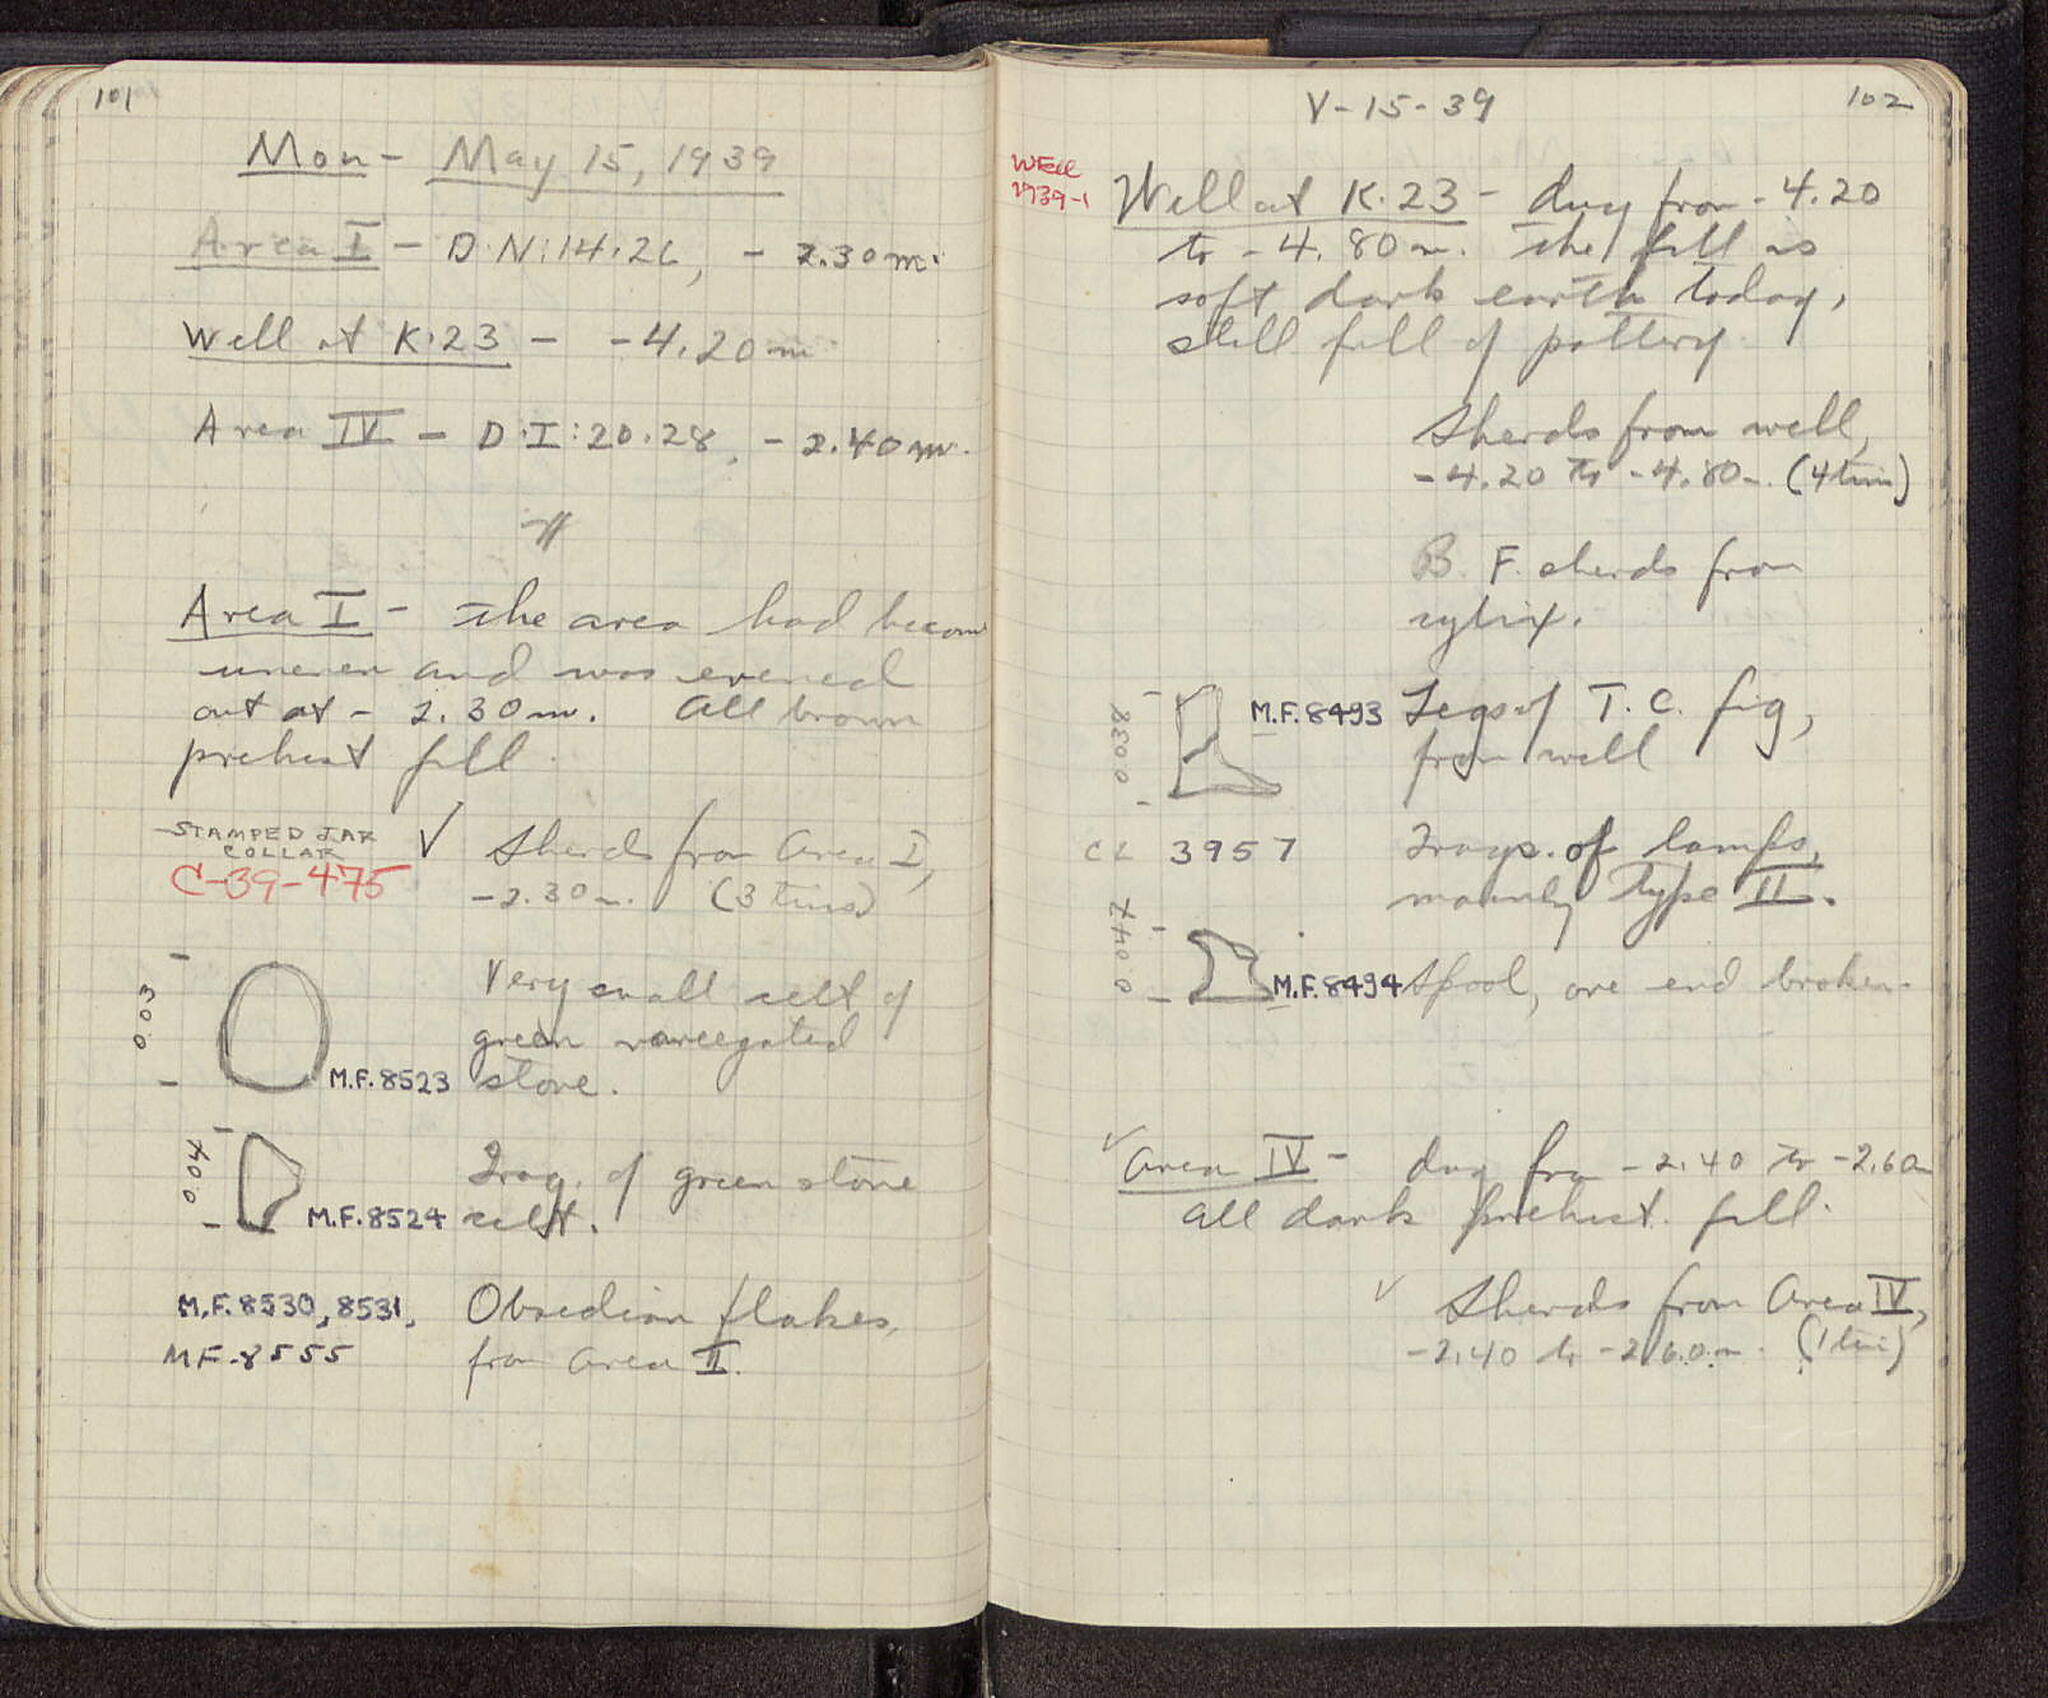 101
Mon - May 15, 1939
Area I - D·N:14·26, - 2.30 m.
Well at K·23 - -4.20 m
Area IV - D·I:20·28, - 2.40 m.
Area I - The area had become
uneven and was evened
out at - 2.30 m. All brown
prehist fill.
STAMPED JAR
COLLAR
C-39-475
✓ Sherds from Area I,
-2.30 m. (3 tins)
0.03
Very small celt of
green variegated
M.F. 8523 stone.
0.04
Frag. of green stone
M.F. 8524 celt.
M.F. 8530, 8531, Obsidian flakes,
MF-8555 from Area I.
V-15-39
102
Well
1939-1
Well at K·23 - dug from -4.20
to -4.80 m. The fill is
soft dark earth today,
still full of pottery.
Sherds from well,
-4.20 to -4.80 m. (4 tins)
B. F. sherds from
0.038
M.F. 8493 Legs of T.C. fig,
from well
CL 3957 Frags. of lamps,
mainly Type II.
0.047
M.F. 8494 Spool, one end broken.
✓ Area IV - dug from -2.40 to -2.60 m
all dark prehist. fill.
✓ Sherds from Area IV,
-2.40 to -2.60 m. (1 tin)